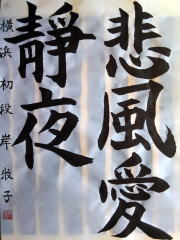 悲風愛
靜夜
横浜 初段 岸 牧子